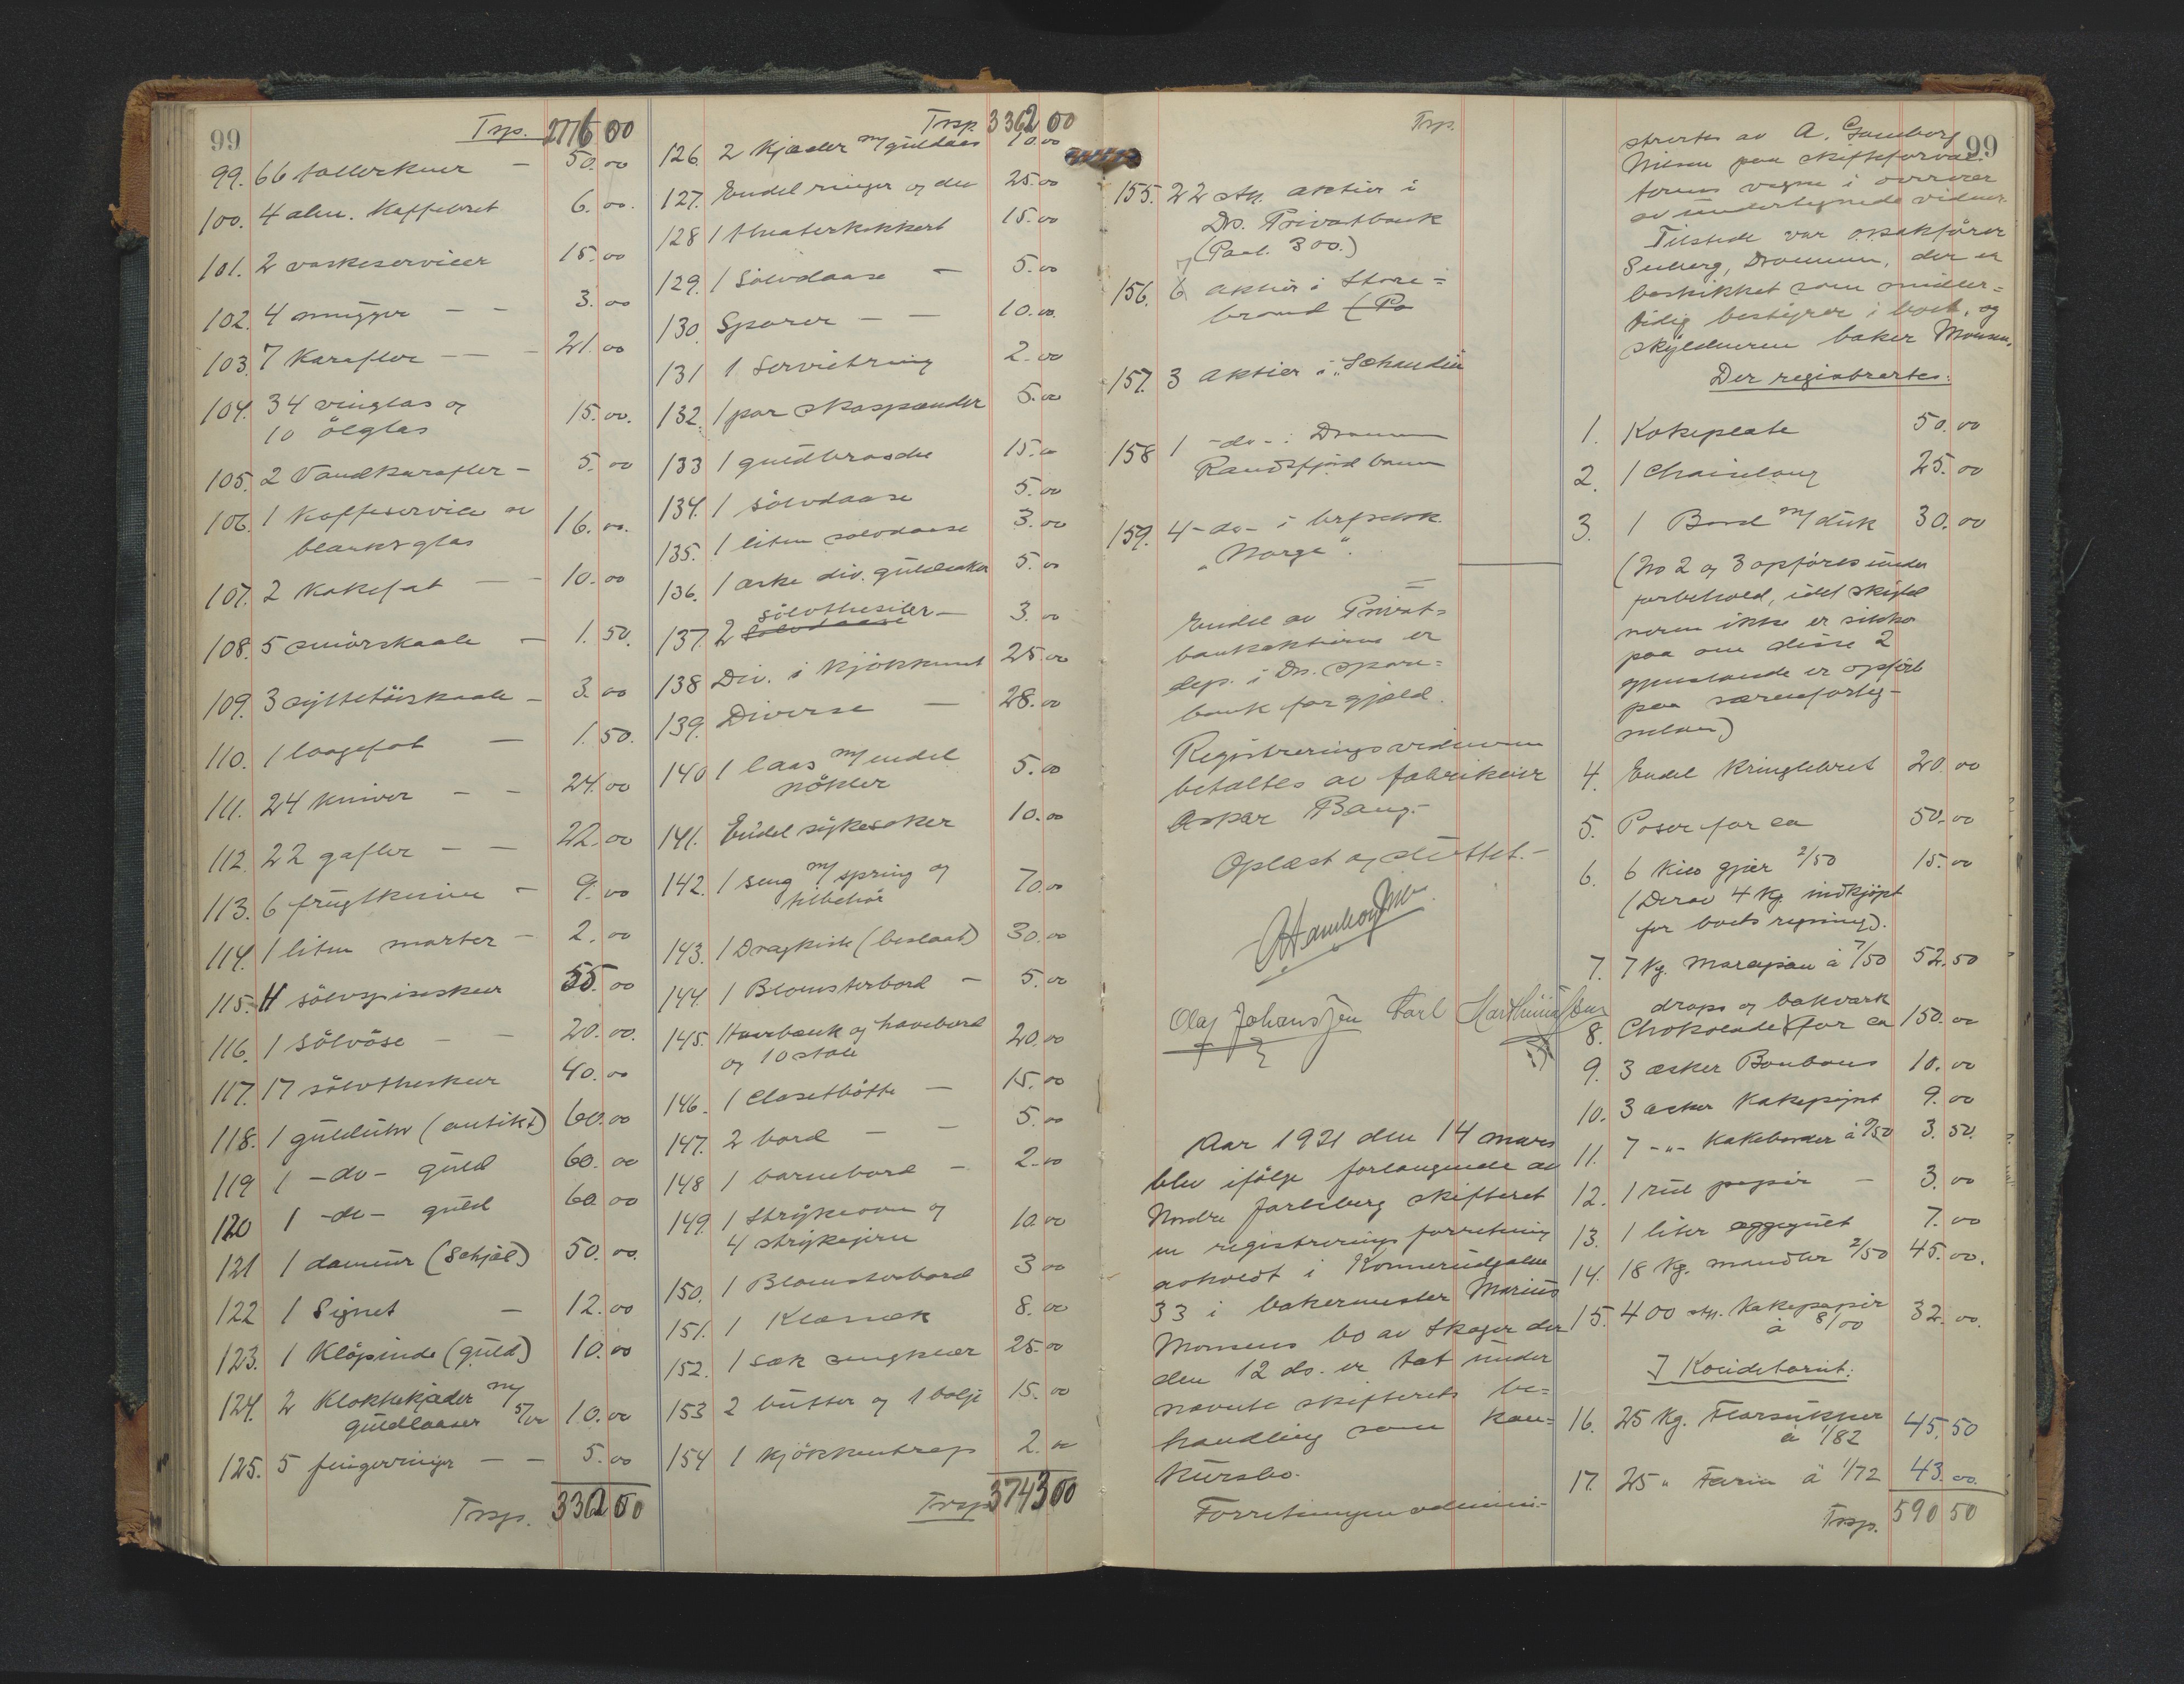 99
Trsp. 2776 00
99. 66 tallerkner — 50.00
100. 4 alm. Kaffebret 6.00
101. 2 vaskeserviser 15.00
102. 4 mugger — — 3.00
103. 7 Karafler — — 21.00
104. 34 vinglas og
10 ölglas 15.00
105. 2 Vandkarafler — 5.00
106. 1 Kaffeservice av
blankt glas 16.00
107. 2 Kakefat — — 10.00
108. 5 smörskaale — 1.50
109. 3 syltetöiskaale — 3.00
110. 1 laagefat — 1.50
111. 24 kniver — — 24.00
112. 22 gafler — — 22.00
113. 6 frugtknive — 9.00
114. 1 liten morter — 2.00
115. 11 sölvspiseskeer 55.00
116. 1 Sölvöse — — 20.00
117. 17 sölvtheskeer 40.00
118. 1 gulduhr (antikt) 60.00
119 1 -do- guld 60.00
120 1 -do- guld 60.00
121 1 dameur (Schjöl) 50.00
122 1 Signet — 12.00
123. 1 Klöpinde (guld) 10.00
124. 2 Klokkekjæder m/
guldlaaser 5/00 10.00
125. 5 fingerringe — — 5.00
Trsp. 3362 00
Trsp. 3362 00
126. 2 Kjæder m/guldlaas 10.00
127. Endel ringer og div 25.00
128 1 theaterkikkert 15.00
129. 1 Sölvdaase — 5.00
130. Sporer — — 10.00
131 1 Serviетring 2.00
132. 1 par skospænder 5.00
133 1 guldbroche 15.00
134. 1 sölvdaase 5.00
135. 1 liten sölvdaase 3.00
136. 1 æske div. guldsaker 5.00
137. 2 Sölvdaase sölvthesiler — 3.00
138 Div. i kjökkenet 25.00
139. Diverse — 28.00
140 1 laas m/endel
nökler 5.00
141. Endel sykesaker 10.00
142. 1 seng m/spring og
tilbehör 70.00
143. 1 Dragkiste (beslaat) 30.00
144. 1 Blomsterbord — 5.00
145. Havebænk og havebord
og 10 stole 20.00
146. 1 Closetbötte — 15.00
147. 2 bord — — 5.00
148 1 barnebord — 2.00
149. 1 Strykeovn og
4 strykejern 10.00
150. 1 Blomsterbord 3.00
151. 1 Klæssæk 8.00
152. 1 sæk sengklær 25.00
153 2 bütter og 1 balje 15.00
154 1 Kjökkentrap 2.00
Trsp. 3743 00
Trsp.
155. 22 stk. aktier i
Dr. Privatbank
(Paal. 300.)
156. 6 aktier i Store=
brand (Pa
157. 3 aktier i "Schandia
158 1 -do- i Drammen
Randsfjord banen
159. 4 -do- i brfselsk
"Norge".
Endel av Privat=
bankaktierne er
dep. i Dr. Spare=
bank for gjæld.
Registreringsvidnerne
betaltes av fabrikeier
Aspar Bang.-
Oplæst og sluttet.-
Olaf Johanssen Karl Marthiniussen
Aar 1921 den 14 mars
blev ifölge forlangende av
Nordre Jarlsberg skifteret
en registrerings forretning
avholdt i Konnerudgaten
33 i bakermester Marius
Monsens bo av Skoger der
den 12 ds. er tat under
nævnte skifterets be=
handling som kon=
kursbo.
Forretningen admini-
99
strertes av A. Gamborg
Nilsen paa skifteforval-
terens vegne i overvær
av undertegnede vidner.
Tilstede var o.r.sakförer
Seeberg, Drammen, der er
beskikket som midler=
tidig bestyrer i boet, og
skyldneren baker Monsen.
Der registrertes:
1. Kokeplate 50.00
2. 1 Chaiselong 25.00
3. 1 Bord m/duk 30.00
(No 2 og 3 opföres under
forbehold, idet skyld
neren ikke er sikker
paa om disse 2
gjenstande er opfört
paa særeieforteg-
nelsen)
4. Endel Kringlebret 20.00
5. Poser for ca 50.00
6. 6 Kilo gjær 2/50 15.00
(Derav 4 Kg. indkjöpt
for boets regning).
7. 7 Kg. Marcipan à 7/50 52.50
drops og bakverk
8. Chokolade for ca 150.00
9. 3 æsker Bonbons 10.00
10. 3 æsker Kakepynt 9.00
11. 7 -"- Kakeborder à 0/50 3.50
12. 1 rul papir — 3.00
13. 1 liter eggegult 7.00
14. 18 Kg. mandler 2/50 45.00
15. 400 stk. Kakepapir
à 8/00 32.00
I Konditoriet:
16. 25 Kg. Flarsukker
à 1/82 45.50
17. 25 " Farin à 1/72 43.00
Trsp. 590 50